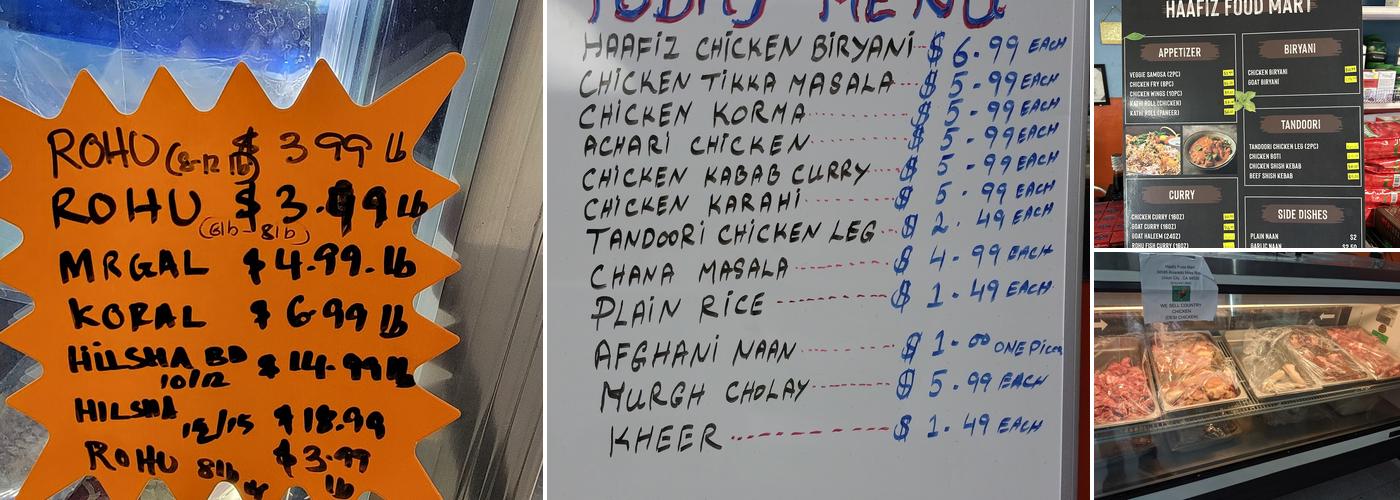 ROHU (8-12 lb) $ 3 99 lb
ROHU $ 3.99 lb
(6lb - 8lb)
MRGAL $ 4.99. lb
KORAL $ 6 99 lb
HiLSHA BD $ 14.99 lb
10/12
HILSHA 12/15 $ 18.99
ROHU 8lb $ 3.99
lb
TODAY MENU
HAAFIZ CHICKEN BIRYANI $ 6.99 EACH
CHICKEN TIKKA MASALA $ 5.99 EACH
CHICKEN KORMA $ 5.99 EACH
ACHARI CHICKEN $ 5.99 EACH
CHICKEN KABAB CURRY $ 5.99 EACH
CHICKEN KARAHI $ 5.99 EACH
TANDOORI CHICKEN LEG $ 2.49 EACH
CHANA MASALA $ 4.99 EACH
PLAIN RICE $ 1.49 EACH
AFGHANI NAAN $ 1.00 ONE Piece
MURGH CHOLAY $ 5.99 EACH
KHEER $ 1.49 EACH
HAAFIZ FOOD MART
APPETIZER
VEGGIE SAMOSA (2PC)
CHICKEN FRY (8PC)
CHICKEN WINGS (10PC)
KATHI ROLL (CHICKEN)
KATHI ROLL (PANEER)
CURRY
CHICKEN CURRY (16OZ)
GOAT CURRY (16OZ)
GOAT HALEEM (24OZ)
ROHU FISH CURRY (16OZ)
BIRYANI
CHICKEN BIRYANI
GOAT BIRYANI
TANDOORI
TANDOORI CHICKEN LEG (2PC)
CHICKEN BOTI
CHICKEN SHISH KEBAB
BEEF SHISH KEBAB
SIDE DISHES
PLAIN NAAN $2
GARLIC NAAN $2.50
Haafiz Food Mart
Union City, CA
WE SELL COUNTRY
CHICKEN
(DESI CHICKEN)